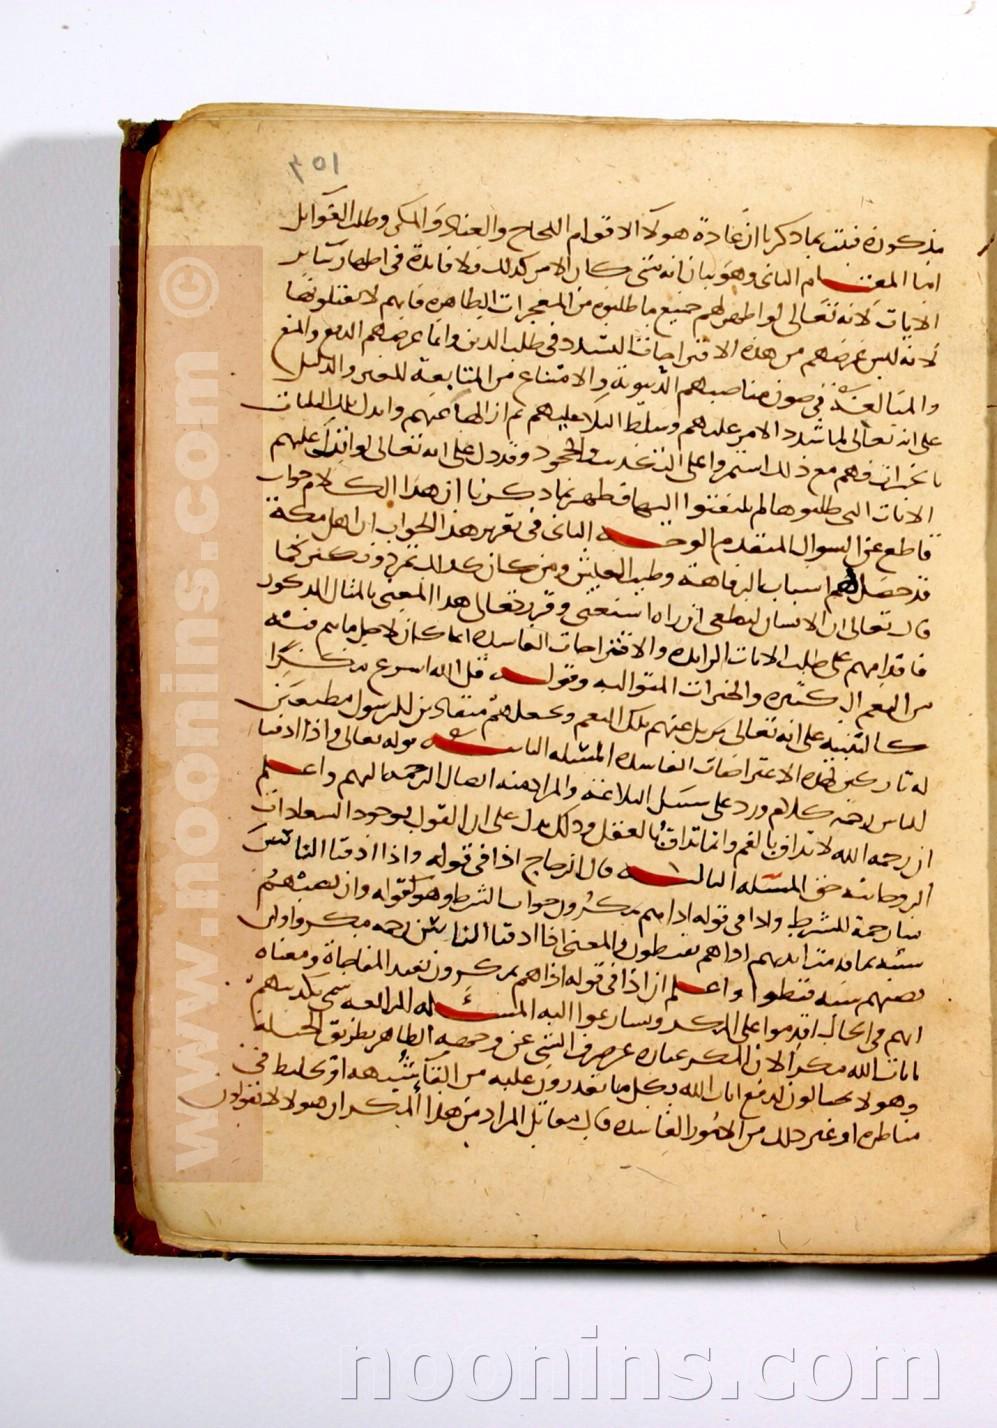 ١٥٢
يذكرون فثبت بما ذكرنا ان عادة هولا الاقوام اللجاج والعناد والمكر وطلب الغوايل
اما المقام الثاني وهو بيان انه متى كان الامر كذلك فلا فايدة في اظهار ساير
الايات لانه تعالى لو اظهر لهم جميع ما طلبوه من المعجرات الظاهره فانهم لا يقبلونها
لانه ليس غرضهم من هذه الاقتراحات التشدد في طلب الدين وانما غرضهم الدفع والمنع
والمبالغة في صون مناصبهم الدنيوية والامتناع من المتابعة للغير والدليل
على انه تعالى لما شدد الامر عليهم وسلط البلا عليهم ثم ازالها عنهم وابدل تلك البليات
بالخيرات فهم مع ذلك استمروا على التكذيب والجحود وقد دل على انه تعالى لو انزل عليهم
الايات التي طلبوها لم يلتفتوا اليها فظهر بما ذكرنا ان هذا الكلام جواب
قاطع عن السوال المتقدم الوجه الثاني في تقرير هذا الجواب ان اهل مكة
قد حصل لهم اسباب الرفاهية وطيب العيش ومن كان كذلك تمرد وتكبر كما
قال تعالى ان الانسان ليطغى ان راه استغنى وقرر تعالى هذا المعنى بالمثال المذكور
فاقدامهم على طلب الايات الزايدة والاقتراحات الفاسده انما كان لاجل ما هم فيه
من النعم الكثيره والخيرات المتواليه وقوله قل الله اسرع مكرا
كالتنبيه على انه تعالى يزيل عنهم تلك النعم ويجعلهم منقادين للرسول مطيعين
له تاركين لهذه الاعتراضات الفاسده المسئله الثانيه قوله تعالى واذا اذقنا
الناس رحمة كلام ورد على سبيل المبالغة والمراد منه ايصال الرحمه اليهم واعلم
ان رحمه الله لا تذاق بالفم وانما تذاق بالعقل وذلك يدل على ان القول بوجود السعادات
الروحانيه حق المسئله الثالثه قال الزجاج اذا في قوله واذا اذقنا الناس
رحمة للشرط واذا في قوله اذا لهم مكر جواب الشرط وهو كقوله وان تصبهم
سيئة بما قدمت ايديهم اذا هم يقنطون والمعنى اذا اذقنا الناس رحمه مكروا وان
تصبهم سيئة قنطوا واعلم ان اذا في قوله اذا لهم مكر تفيد المفاجاة ومعناه
انهم في الحال اقدموا على المكر وسارعوا اليه المسئله الرابعه سمى تكذيبهم
بايات الله مكرا لان المكر عباره عن صرف الشي عن وجهه الظاهر بطريق الحيلة
وهولا يحتالون لدفع ايات الله بكل ما يقدرون عليه من القا شبهه او تخليط في
مناظره او غير ذلك من الامور الفاسده قال مقاتل المراد من هذا المكر ان هولا لا يقولون
www.noonins.com ©
noonins.com